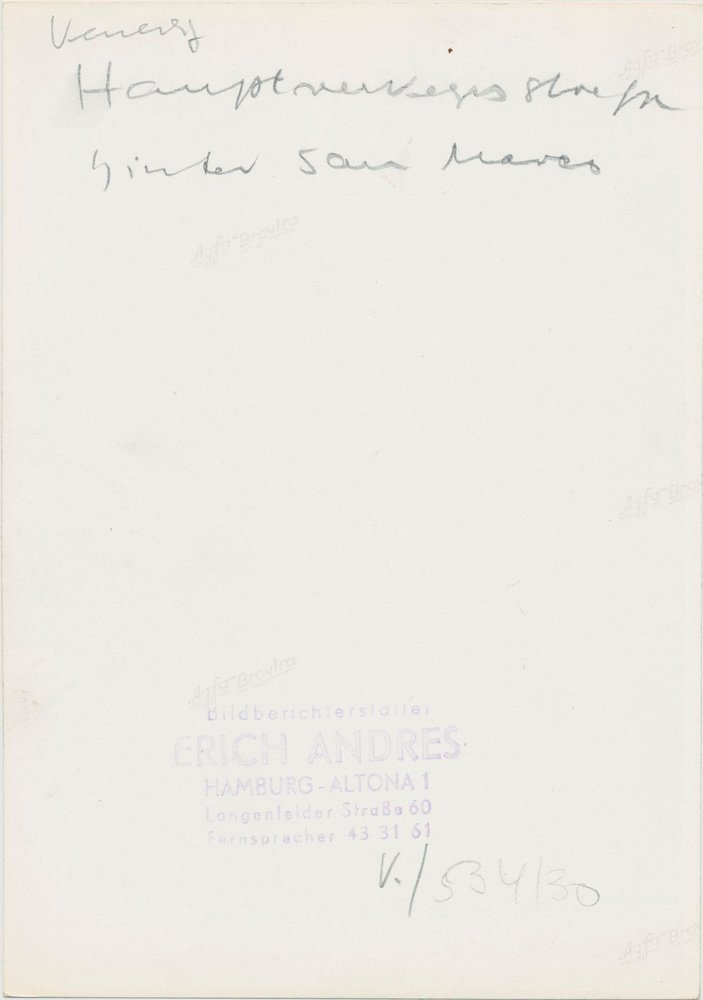 Venedig
Agfa-Brov
Hauptverkehrsstraße
hinter San Marco
Agfa-Brovira
Agfa-Brov
Agfa-Brovira
Bildberichterstatter
ERICH ANDRES
HAMBURG-ALTONA 1
Langenfelder Straße 60
Fernsprecher 43 31 61
V./534/30
Agfa-Bro